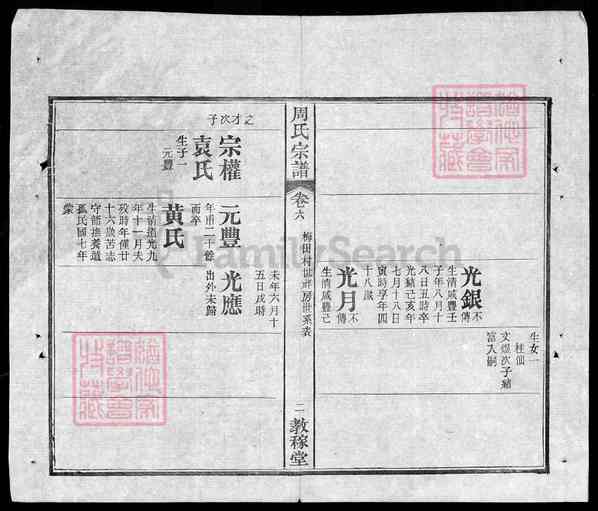 光銀
不傳
生清咸豐壬
子年八月十
八日丑時卒
光緒己亥年
七月十八日
寅時享年四
十八歲
生女一
桂仙
文煜次子緒
富入嗣
光月
不傳
生清咸豐己
周氏宗譜
卷六
梅田村世祥房世系表
二
教稼堂
之才次子
宗權
袁氏
生子一
元豐
元豐
年甫二十餘
而卒
黃氏
生清道光九
年十一月夫
歿時年僅廿
十六歲苦志
守節撫養遺
孤民國七年
蒙
未年六月十
五日戌時
光應
出外未歸
猶他家
譜學會
特藏
猶他家
譜學會
特藏
FamilySearch